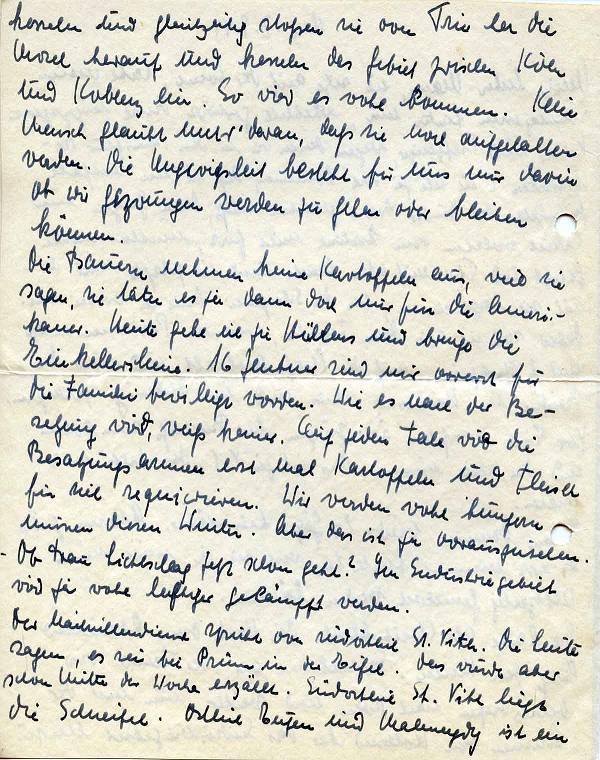 kesseln und gleichzeitig stoßen sie von Trier her die
Mosel herauf und kesseln das Gebiet zwischen Köln
und Koblenz ein. So wird es wohl kommen. Kein
Mensch glaubt mehr daran, daß sie noch aufgehalten
werden. Die Ungewißheit besteht für uns nur darin
ob wir gezwungen werden zu gehen oder bleiben
können.
Die Bauern nehmen keine Kartoffeln aus, weil sie
sagen, sie täten es ja dann doch nur für die Ameri-
kaner. Heute gehe ich zu und bringe die
Einkellerscheine. 16 Zentner sind mir vorerst für
die Familie bewilligt worden. Wie es nach der Be-
setzung wird, weiß keiner. Auf jeden Fall wird die
Besatzungsarmee erst mal Kartoffeln und Fleisch
für sich requirieren. Wir werden wohl hungern
müssen diesen Winter. Aber das ist ja vorauszusehen.
- Ob Frau Lichtschlag jetzt schon geht? Im Industriegebiet
wird ja wohl heftiger gekämpft werden.
Der spricht von südöstlich St. Vith. Die Leute
sagen, es sei bei Prüm in der Eifel. Das wurde aber
schon Mitte der Woche erzählt. Südöstlich St. Vith liegt
die Schneifel. Östlich Eupen und Malmedy ist ein